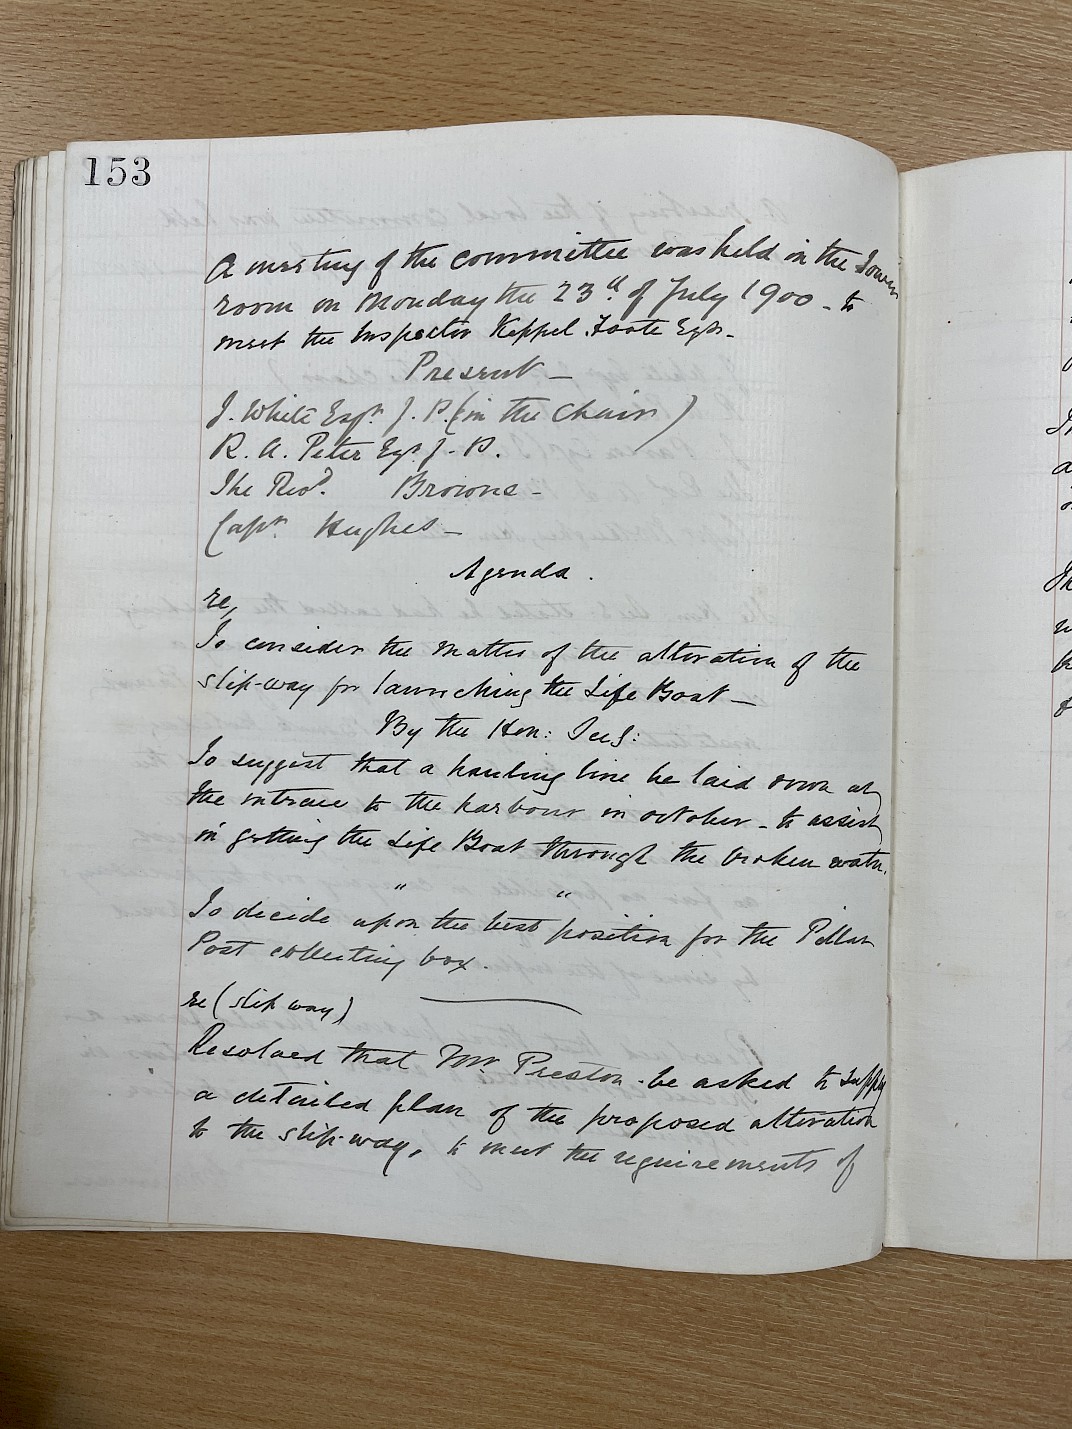 153
A meeting of the committee was held in the Tower
room on Monday the 23rd. of July 1900 - to
meet the Inspector Keppel Foote Esqr -
Present -
J. White Esqr. J. P. (in the Chair)
R. A. Peter Esqr. J. P.
The Revd. Browne -
Capn. Hughes -
Agenda.
re,
To consider the matter of the alteration of the
slip-way for launching the Life Boat -
By the Hon: Secy:
To suggest that a hauling line be laid down at
the intrace to the harbour in october - to assist
in getting the Life Boat through the broken water.
" "
To decide upon the best position for the Pillar
Post collecting box.
re (slip way)
Resolved that Mr. Preston - be asked to supply
a detailed plan of the proposed alteration
to the slip-way, to meet the requirements of